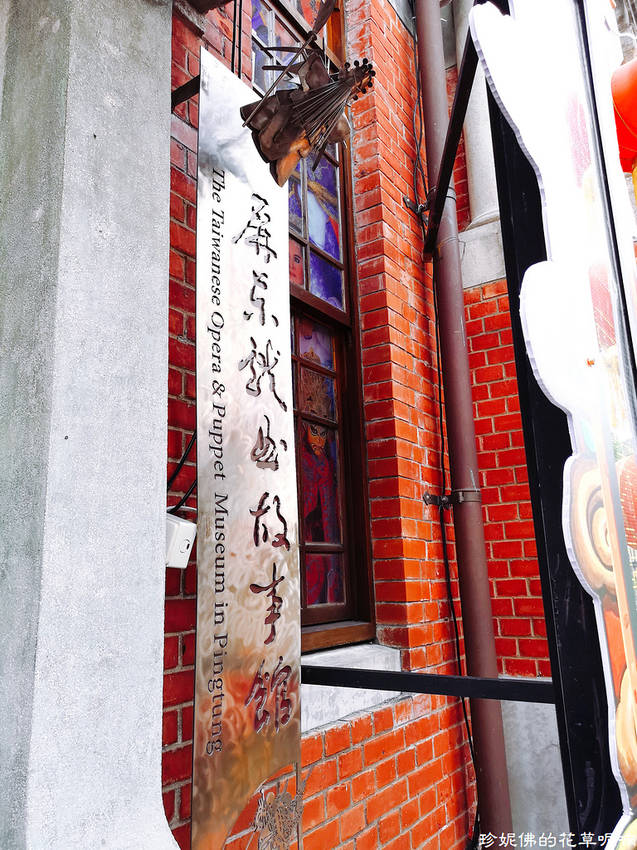 屏東戲曲故事館
The Taiwanese Opera & Puppet Museum in Pingtung
珍妮佛的花草